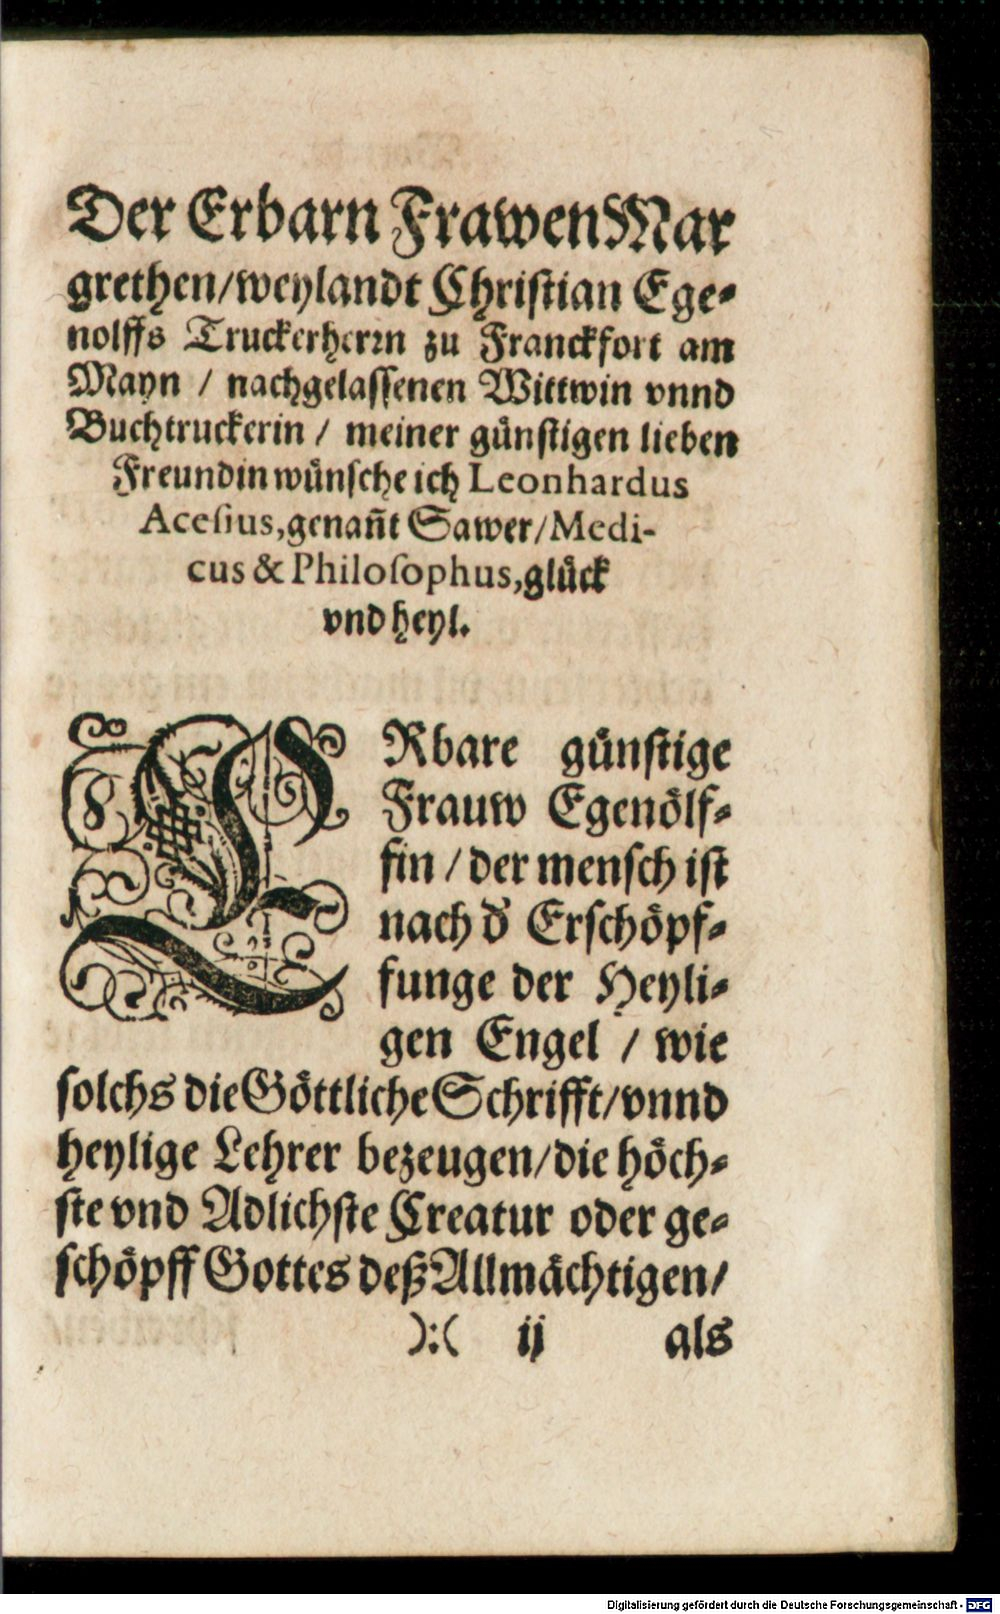 Der Erbarn Frawen Mar
grethen/weylandt Christian Ege⸗
nolffs Truckerherrn zu Franckfort am
Mayn / nachgelassenen Wittwin vnnd
Buchtruckerin / meiner günstigen lieben
Freundin wünsche ich Leonhardus
Acesius, genañt Sawer/Medi-
cus & Philosophus, glück
vnd heyl.
ERbare günstige
Frauw Egenölf⸗
fin / der mensch ist
nach d̄ Erschöpf⸗
funge der Heyli⸗
gen Engel / wie
solchs die Göttliche Schrifft/vnnd
heylige Lehrer bezeugen/die höch⸗
ste vnd Adlichste Creatur oder ge⸗
schöpff Gottes deß Allmächtigen/
):( ij als
Digitalisierung gefördert durch die Deutsche Forschungsgemeinschaft - DFG